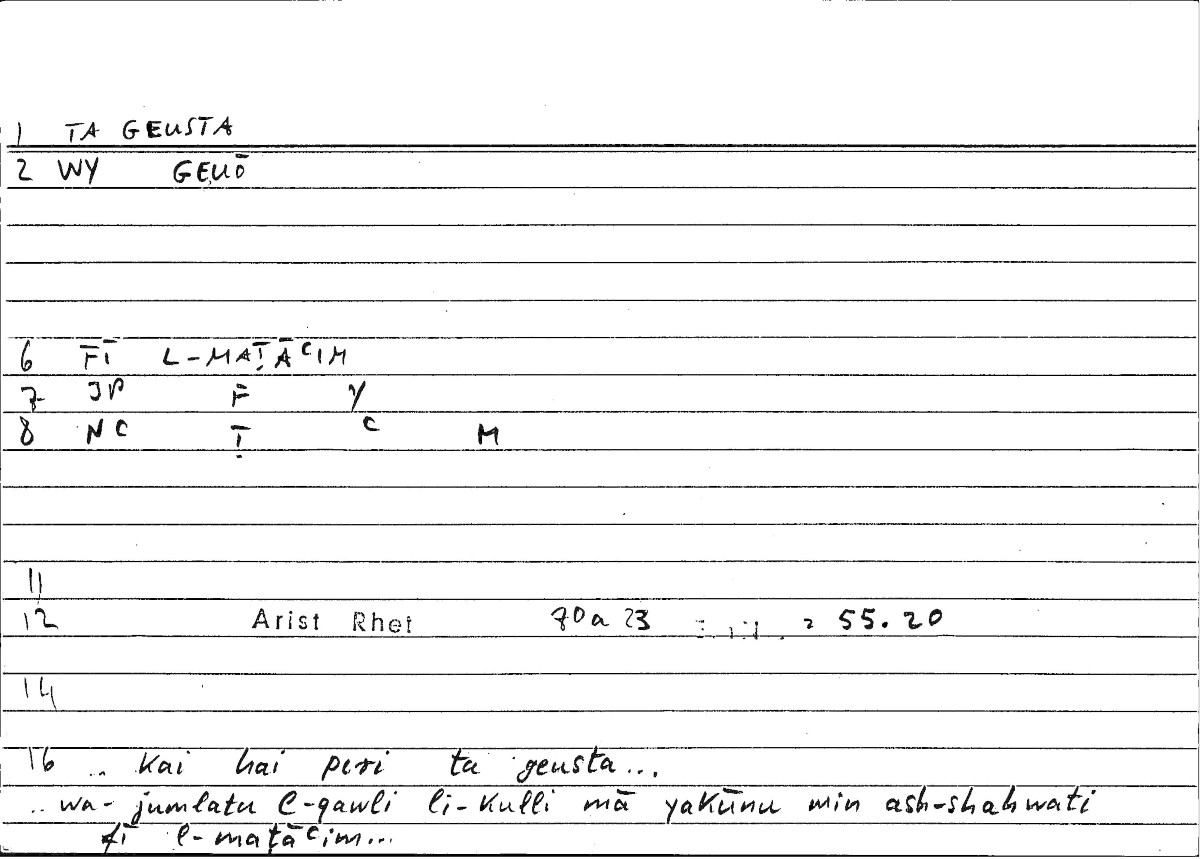 1 TA GEUSTA
2 WY GEUŌ
6 FĪ L-MAṬĀᶜIM
7 JP F Y
8 NC Ṭ ᶜ M
11
12 Arist Rhet 70a 23 55.20
14
16 .. Kai hai peri ta geusta...
.. wa-jumlatu l-qawli li-kulli mā yakūnu min ash-shahwati
fī l-maṭāᶜim...